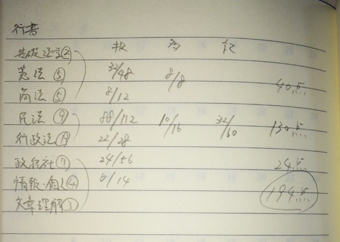 行書
基礎法学② 択 多 記
憲法⑤ 32/48 8/8 40点
商法⑤ 8/12
民法⑨ 88/112 10/16 32/60 130点
行政法⑲ 22/28
政経社⑦ 24/56 24点
情報・個人④ /14 194点
文章理解①